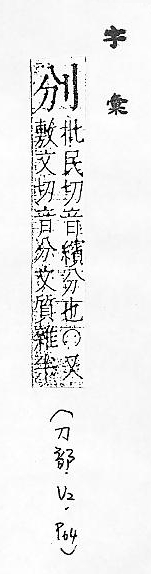 字彙
批民切音繽分也○又
敷文切音分文質雜半
(刀部·V2·P64)